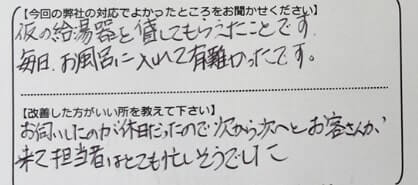 【今回の弊社の対応でよかったところをお聞かせください】
仮の給湯器を貸してもらえたことです.
毎日、お風呂に入れて有難かったです。
【改善した方がいい所を教えて下さい】
お伺いしたのが休日だったので次から次へとお客さんが、
来て担当者はとても忙しそうでした